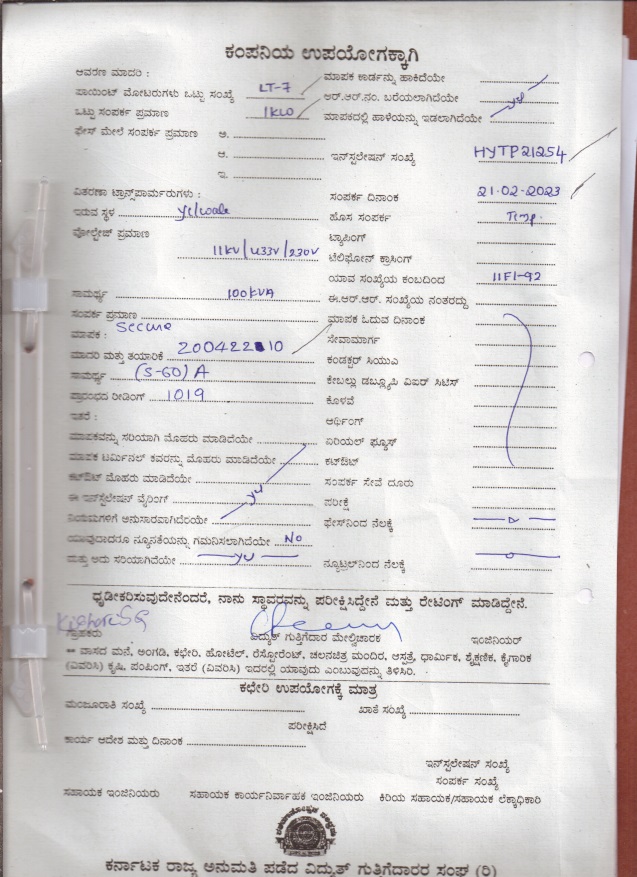 ಕಂಪನಿಯ ಉಪಯೋಗಕ್ಕಾಗಿ
ಆವರಣ ಮಾದರಿ :
ಮಾಪಕ ಕಾರ್ಡನ್ನು ಹಾಕಿದೆಯೇ
ಪಾಯಿಂಟ್ ಮೋಟರುಗಳು ಒಟ್ಟು ಸಂಖ್ಯೆ LT-7
ಆರ್.ಆರ್.ನಂ. ಬರೆಯಲಾಗಿದೆಯೇ
ಒಟ್ಟು ಸಂಪರ್ಕ ಪ್ರಮಾಣ 1KW
ಮಾಪಕದಲ್ಲಿ ಹಾಳೆಯನ್ನು ಇಡಲಾಗಿದೆಯೇ
ಫೇಸ್ ಮೇಲೆ ಸಂಪರ್ಕ ಪ್ರಮಾಣ ಅ.
ಆ.
ಇನ್‌ಸ್ಟಲೇಷನ್ ಸಂಖ್ಯೆ HYTP21254
ಇ.
ವಿತರಣಾ ಟ್ರಾನ್ಸ್‌ಪಾರ್ಮರುಗಳು :
ಸಂಪರ್ಕ ದಿನಾಂಕ 21.02-2023
ಇರುವ ಸ್ಥಳ
ಹೊಸ ಸಂಪರ್ಕ Temp.
ವೋಲ್ಟೇಜ್ ಪ್ರಮಾಣ
ಟ್ಯಾಪಿಂಗ್
11KV/433V/230V
ಟೆಲಿಫೋನ್ ಕ್ರಾಸಿಂಗ್
ಯಾವ ಸಂಖ್ಯೆಯ ಕಂಬದಿಂದ 11F1-92
ಸಾಮರ್ಥ್ಯ 100KVA
ಈ.ಆರ್.ಆರ್. ಸಂಖ್ಯೆಯ ನಂತರದ್ದು
ಸಂಪರ್ಕ ಪ್ರಮಾಣ
ಮಾಪಕ ಓದುವ ದಿನಾಂಕ
ಮಾಪಕ : Secure
ಸೇವಾಮಾರ್ಗ
ಮಾದರಿ ಮತ್ತು ತಯಾರಿಕೆ 200422 10
ಕಂಡಕ್ಟರ್ ಸಿಯುಎ
ಸಾಮರ್ಥ್ಯ (5-60) A
ಕೇಬಲ್ಲು ಡಬ್ಲ್ಯೂಪಿ ವಿಐರ್ ಸಿಟಿಸ್
ಪ್ರಾರಂಭದ ರೀಡಿಂಗ್ 1019
ಕೊಳವೆ
ಇತರೆ :
ಅರ್ಥಿಂಗ್
ಮಾಪಕವನ್ನು ಸರಿಯಾಗಿ ಮೊಹರು ಮಾಡಿದೆಯೇ
ಏರಿಯಲ್ ಫ್ಯೂಸ್
ಮಾಪಕ ಟರ್ಮಿನಲ್ ಕವರನ್ನು ಮೊಹರು ಮಾಡಿದೆಯೇ
ಕಟ್‌ಔಟ್
ಕಟ್‌ಔಟ್ ಮೊಹರು ಮಾಡಿದೆಯೇ
ಸಂಪರ್ಕ ಸೇವೆ ದೂರು
ಈ ಇನ್‌ಸ್ಟಲೇಷನ್ ವೈರಿಂಗ್
ಪರೀಕ್ಷೆ
ನಿಯಮಗಳಿಗೆ ಅನುಸಾರವಾಗಿದೆಯೇ
ಫೇಸ್‌ನಿಂದ ನೆಲಕ್ಕೆ
ಯಾವುದಾದರೂ ನ್ಯೂನತೆಯನ್ನು ಗಮನಿಸಲಾಗಿದೆಯೇ No
ಮತ್ತು ಅದು ಸರಿಯಾಗಿದೆಯೇ
ನ್ಯೂಟ್ರಲ್‌ನಿಂದ ನೆಲಕ್ಕೆ
ಧೃಡೀಕರಿಸುವುದೇನೆಂದರೆ, ನಾನು ಸ್ಥಾವರವನ್ನು ಪರೀಕ್ಷಿಸಿದ್ದೇನೆ ಮತ್ತು ರೇಟಿಂಗ್ ಮಾಡಿದ್ದೇನೆ.
ಗ್ರಾಹಕರು
ವಿದ್ಯುತ್ ಗುತ್ತಿಗೆದಾರ ಮೇಲ್ವಿಚಾರಕ
ಇಂಜಿನಿಯರ್
** ವಾಸದ ಮನೆ, ಅಂಗಡಿ, ಕಛೇರಿ, ಹೋಟೆಲ್, ರೆಸ್ಟೋರೆಂಟ್, ಚಲನಚಿತ್ರ ಮಂದಿರ, ಆಸ್ಪತ್ರೆ, ಧಾರ್ಮಿಕ, ಶೈಕ್ಷಣಿಕ, ಕೈಗಾರಿಕ
(ವಿವರಿಸಿ) ಕೃಷಿ, ಪಂಪಿಂಗ್, ಇತರೆ (ವಿವರಿಸಿ) ಇದರಲ್ಲಿ ಯಾವುದು ಎಂಬುವುದನ್ನು ತಿಳಿಸಿರಿ.
ಕಛೇರಿ ಉಪಯೋಗಕ್ಕೆ ಮಾತ್ರ
ಮಂಜೂರಾತಿ ಸಂಖ್ಯೆ
ಖಾತೆ ಸಂಖ್ಯೆ
ಪರೀಕ್ಷಿಸಿದೆ
ಕಾರ್ಯ ಆದೇಶ ಮತ್ತು ದಿನಾಂಕ
ಇನ್‌ಸ್ಟಲೇಷನ್ ಸಂಖ್ಯೆ
ಸಂಪರ್ಕ ಸಂಖ್ಯೆ
ಸಹಾಯಕ ಇಂಜಿನಿಯರು
ಸಹಾಯಕ ಕಾರ್ಯನಿರ್ವಾಹಕ ಇಂಜಿನಿಯರು
ಕಿರಿಯ ಸಹಾಯಕ/ಸಹಾಯಕ ಲೆಕ್ಕಾಧಿಕಾರಿ
ಕರ್ನಾಟಕ ರಾಜ್ಯ ಅನುಮತಿ ಪಡೆದ ವಿದ್ಯುತ್ ಗುತಿಗೆದಾರರ ಸಂಘ (ರಿ)